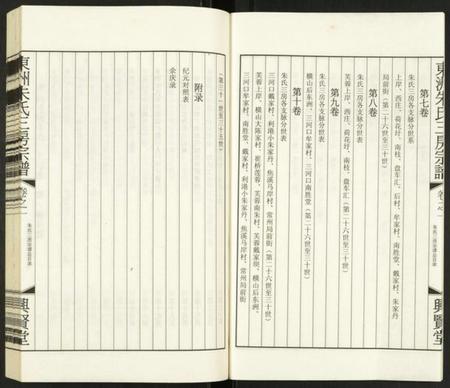 東洲朱氏三房宗譜
卷之一
興賢堂
第七卷
朱氏三房各支脉分世系
上岸、西庄、荷花圩、南枝、盘车汇、后村、牟家村、南胜堂、戴家村、朱家丹
局前街(第二十六世至三十世)
第八卷
朱氏三房各支脉分世表
芙蓉上岸、西庄、荷花圩、南枝、盘车汇(第二十六世至三十世)
第九卷
朱氏三房各支脉分世表
横山后东洲、三河口牟家村、三河口南胜堂(第二十六世至三十世)
第十卷
朱氏三房各支脉分世表
三河口戴家村、利港小朱家丹、焦溪马岸村、常州局前街(第二十六世至三十世)
芙蓉上岸、横山大陈家村、崔桥莲蓉、芙蓉南朱村、芙蓉戴家坝、横山后东洲、
三河口牟家村、南胜堂、戴家村、利港小朱家丹、焦溪马岸村、常州局前街
(第三十一世至三十五世)
附录
纪元对照表
余庆录
東洲朱氏三房宗譜
卷之一
興賢堂